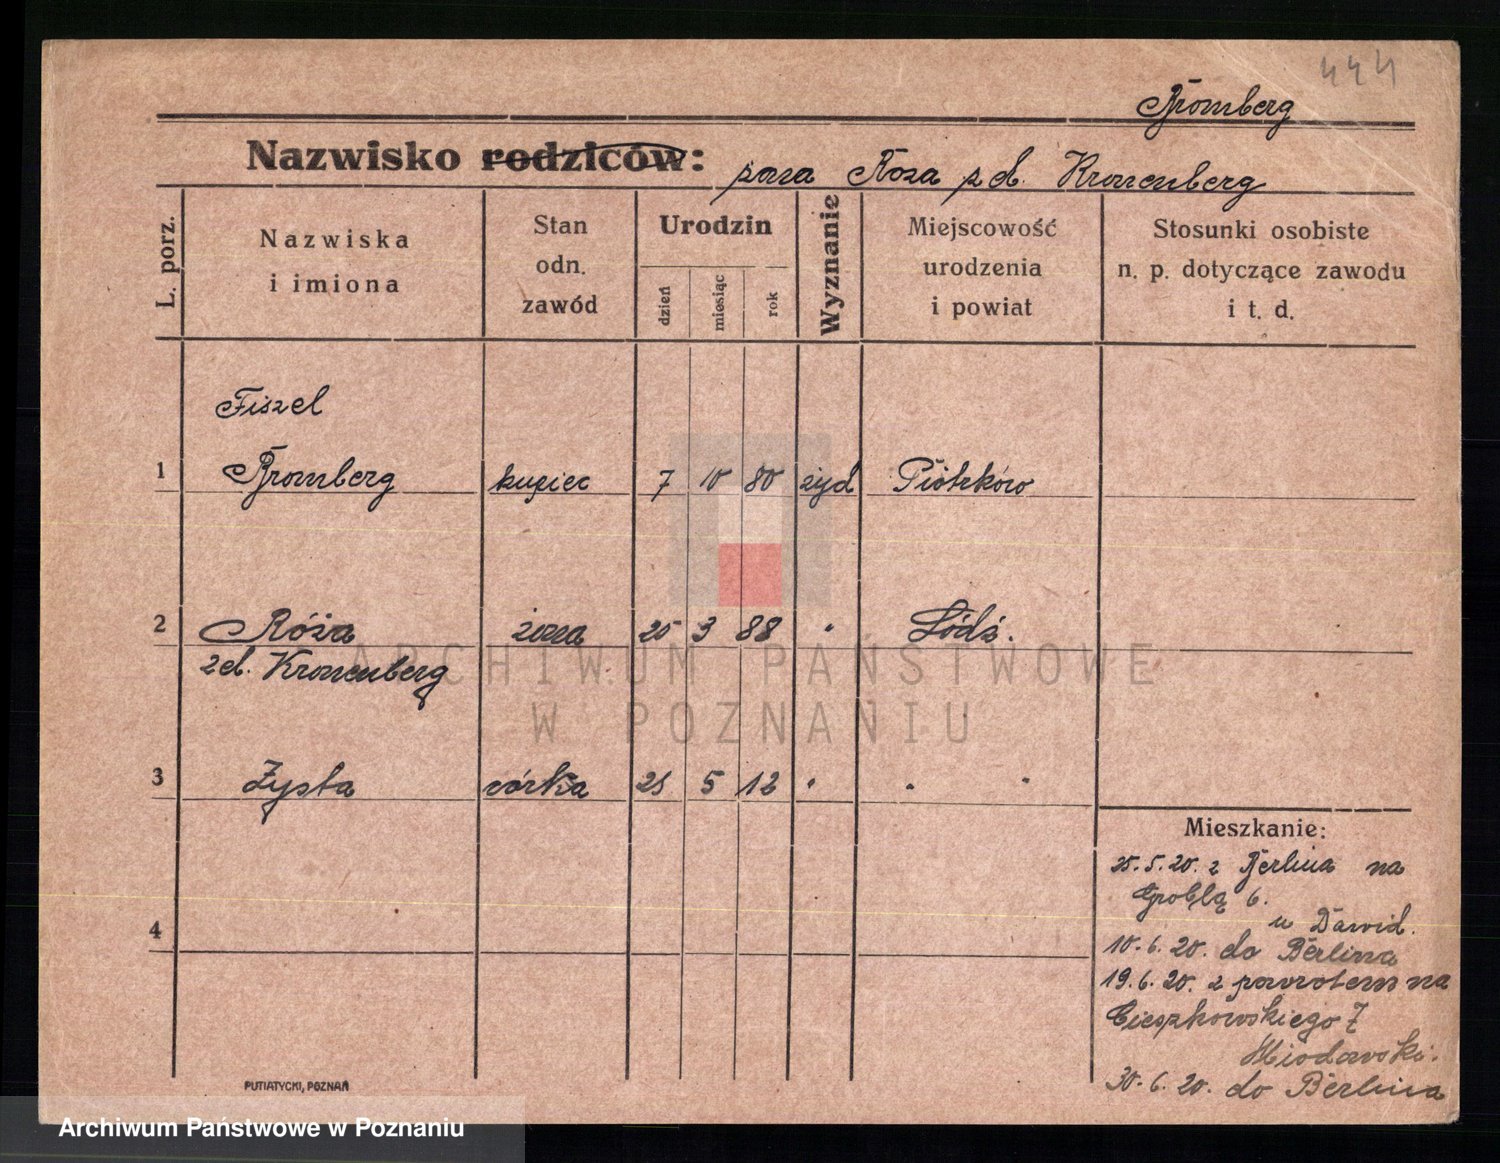 444
Bromberg
Nazwisko rodziców: żona Róża z d. Kronenberg
L. porz.
Nazwiska i imiona
Stan odn. zawód
Urodzin
dzień
miesiąc
rok
Wyznanie
Miejscowość urodzenia i powiat
Stosunki osobiste n. p. dotyczące zawodu i t. d.
Fiszel
1 Bromberg kupiec 7 10 80 żyd Piotrków
2 Róża żona 25 3 88 " Łódź.
zd. Kronenberg
3 Zysla córka 21 5 12 " " "
4
Mieszkanie:
25.5.20. z Berlina na
Groblą 6.
u Dawid.
10.6.20. do Berlina
19.6.20. z powrotem na
Cieszkowskiego 7
Miodowski.
30.6.20. do Berlina
PUTIATYCKI, POZNAŃ
ARCHIWUM PAŃSTWOWE
W POZNANIU
Archiwum Państwowe w Poznaniu